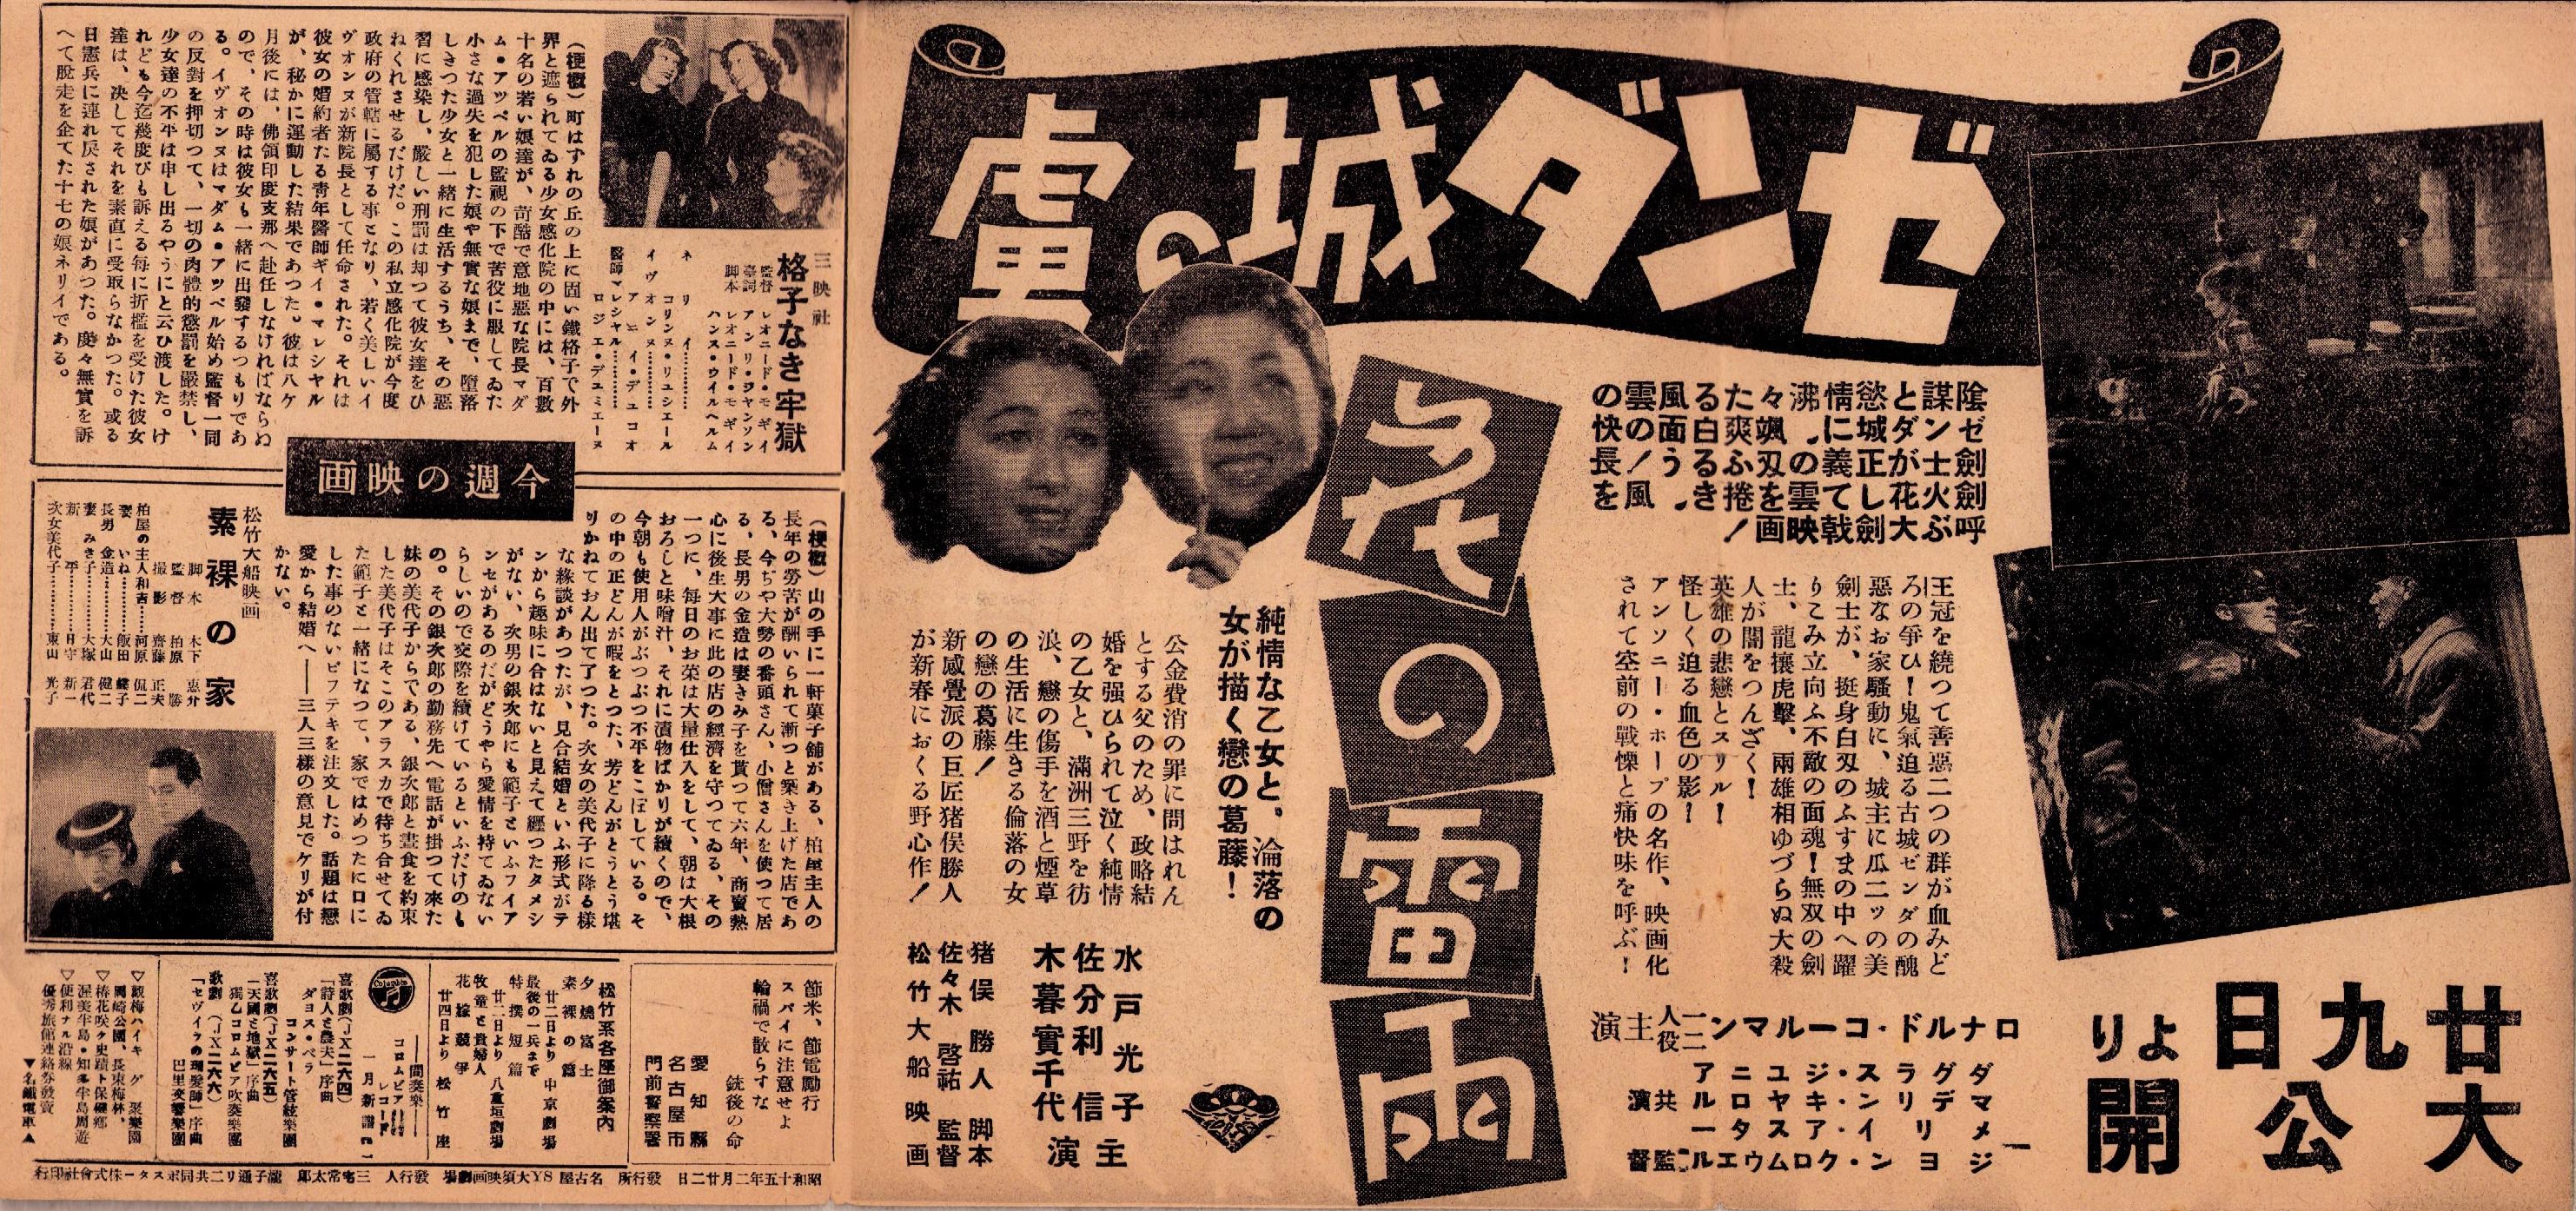 ゼンダ城の虜
陰謀と慾情沸々たる風雲の
ゼンダ城に颯爽白面の快
劍士が正義の刄ふるう!風
劍火花し.て雲を捲き.長
呼ぶ大劍戟映画!
王冠を繞つて善惡二つの群が血みど
ろの爭ひ!鬼氣迫る古城ゼンダの醜
惡なお家騷動に、城主に瓜二ツの美
劍士が、挺身白刄のふすまの中へ躍
りこみ立向ふ不敵の面魂!無双の劍
士、龍攘虎擊、兩雄相ゆづらぬ大殺
人が闇をつんざく!
英雄の悲戀とスリル!
怪しく迫る血色の影!
アンソニー・ホープの名作、映画化
されて空前の戰慄と痛快味を呼ぶ!
ロナルド・コールマン 一人二役 主演
ダグラス・ジユニア
マデリン・キヤロル 共演
メイリー・アスター
ジヨン・クロムウエル 監督
廿九日より
大公開
花の雷雨
純情な乙女と、淪落の
女が描く戀の葛藤!
公金費消の罪に問はれん
とする父のため、政略結
婚を强ひられて泣く純情
の乙女と、滿洲三野を彷
浪、戀の傷手を酒と煙草
の生活に生きる倫落の女
の戀の葛藤!
新感覺派の巨匠猪俣勝人
が新春におくる野心作!
水戸光子
佐分利信
木暮實千代
主演
猪俣勝人 脚本
佐々木啓祐 監督
松竹大船映画
今週の映画
三映社
格子なき牢獄
監督 レオニード・モギイ
臺詞 アンリ・ヂヤンソン
脚本 レオニード・モギイ
ハンス・ウイルヘルム
ネリイ………コリンヌ・リユシエール
イヴオンヌ………アニイ・デユコオ
醫師マレシヤル………ロジエ・デユミエーヌ
(梗概)町はずれの丘の上に固い鐵格子で外
界と遮られてゐる少女感化院の中には、百數
十名の若い娘達が、苛酷で意地惡な院長マダ
ム・アツペルの監視の下で苦役に服してゐた
小さな過失を犯した娘や無實な娘まで、墮落
しきつた少女と一緒に生活するうち、その惡
習に感染し、嚴しい刑罰は却つて彼女達をひ
ねくれさせるだけだ。この私立感化院が今度
政府の管轄に屬する事となり、若く美しいイ
ヴオンヌが新院長として任命された。それは
彼女の婚約者たる靑年醫師ギイ・マレシヤル
が、秘かに運動した結果であつた。彼は八ケ
月後には、佛領印度支那へ赴任しなければならぬ
ので、その時は彼女も一緒に出發するつもりであ
る。イヴオンヌはマダム・アツペル始め監督一同
の反對を押切つて、一切の肉體的懲罰を嚴禁し、
少女達の不平は申し出るやうにと云ひ渡した。け
れども今迄幾度びも訴える每に折檻を受けた彼女
達は、決してそれを素直に受取らなかつた。或る
日憲兵に連れ戾された娘があつた。度々無實を訴
へて脫走を企てた十七の娘ネリイである。
松竹大船映画
素裸の家
脚本 木下惠介
監督 柏原勝
撮影 齋藤正夫
柏屋の主人和吉………河原侃二
妻 いね………飯田蝶子
長男 金造………大山健二
妻 みき子………大塚君代
新平………日守新一
次女美代子………東山光子
(梗概)山の手に一軒菓子舖がある、柏屋主人の
長年の勞苦が酬いられて漸つと築き上げた店であ
る、今ぢや大勢の番頭さん、小僧さんを使つて居
る、長男の金造は妻きみ子を貰つて六年、商賣熱
心に後生大事に此の店の經濟を守つてゐる、その
一つに、每日のお菜は大量仕入をして、朝は大根
おろしと味噌汁、それに漬物ばかりが續くので、
今朝も使用人がぶつぶつ不平をこぼしている。そ
の中の正どんが暇をとつた、芳どんがとうとう堪
りかねておん出て了つた。次女の美代子に降る樣
な緣談があつたが、見合結婚といふ形式がテ
ンから趣味に合はないと見えて纒つたタメシ
がない、次男の銀次郎にも範子といふフイア
ンセがあるのだがどうやら愛情を持てゐない
らしいので交際を續けているといふだけのも
の。その銀次郎の勤務先へ電話が掛つて來た
妹の美代子からである、銀次郎と晝食を約束
した美代子はそこのアラスカで待ち合せてゐ
た範子と一緒になつて、家ではめつたに口に
した事のないビフテキを注文した。話題は戀
愛から結婚へ——三人三樣の意見でケリが付
かない。
節米、節電勵行
スパイに注意せよ
輪禍で散らすな
銃後の命
愛知縣
名古屋市
門前警察署
松竹系各座御案內
夕燒富士
素裸の家
廿二日より 中京劇場
最後の一兵まで
特撰短篇
廿二日より 八重垣劇場
牧童と貴婦人
花嫁競爭
廿四日より 松竹座
Columbia
——間奏樂——
コロムビアレコード
一月新譜
喜歌劇(JX二六四)
「詩人と農夫」序曲
ダヨス・ベラ
コンサート管絃樂團
喜歌劇(JX二六五)
「天國と地獄」序曲
獨乙コロムビア吹奏樂團
歌劇(JX二六六)
「セヴイラの理髮師」序曲
巴里交響樂團
▽觀梅ハイキング 聚樂園
岡崎公園、長束梅林、
▽椿花咲ク史蹟ト保養鄕
渥美半島・知多半島周遊
▽便利ナル沿線
優秀旅館連絡券發賣
▼名鐵電車▲
昭和十五年二月廿二日 發行所 名古屋 SY大須映画劇場 發行人 三宅常太郎 瀧子通リ二共同ポスター株式會社印行